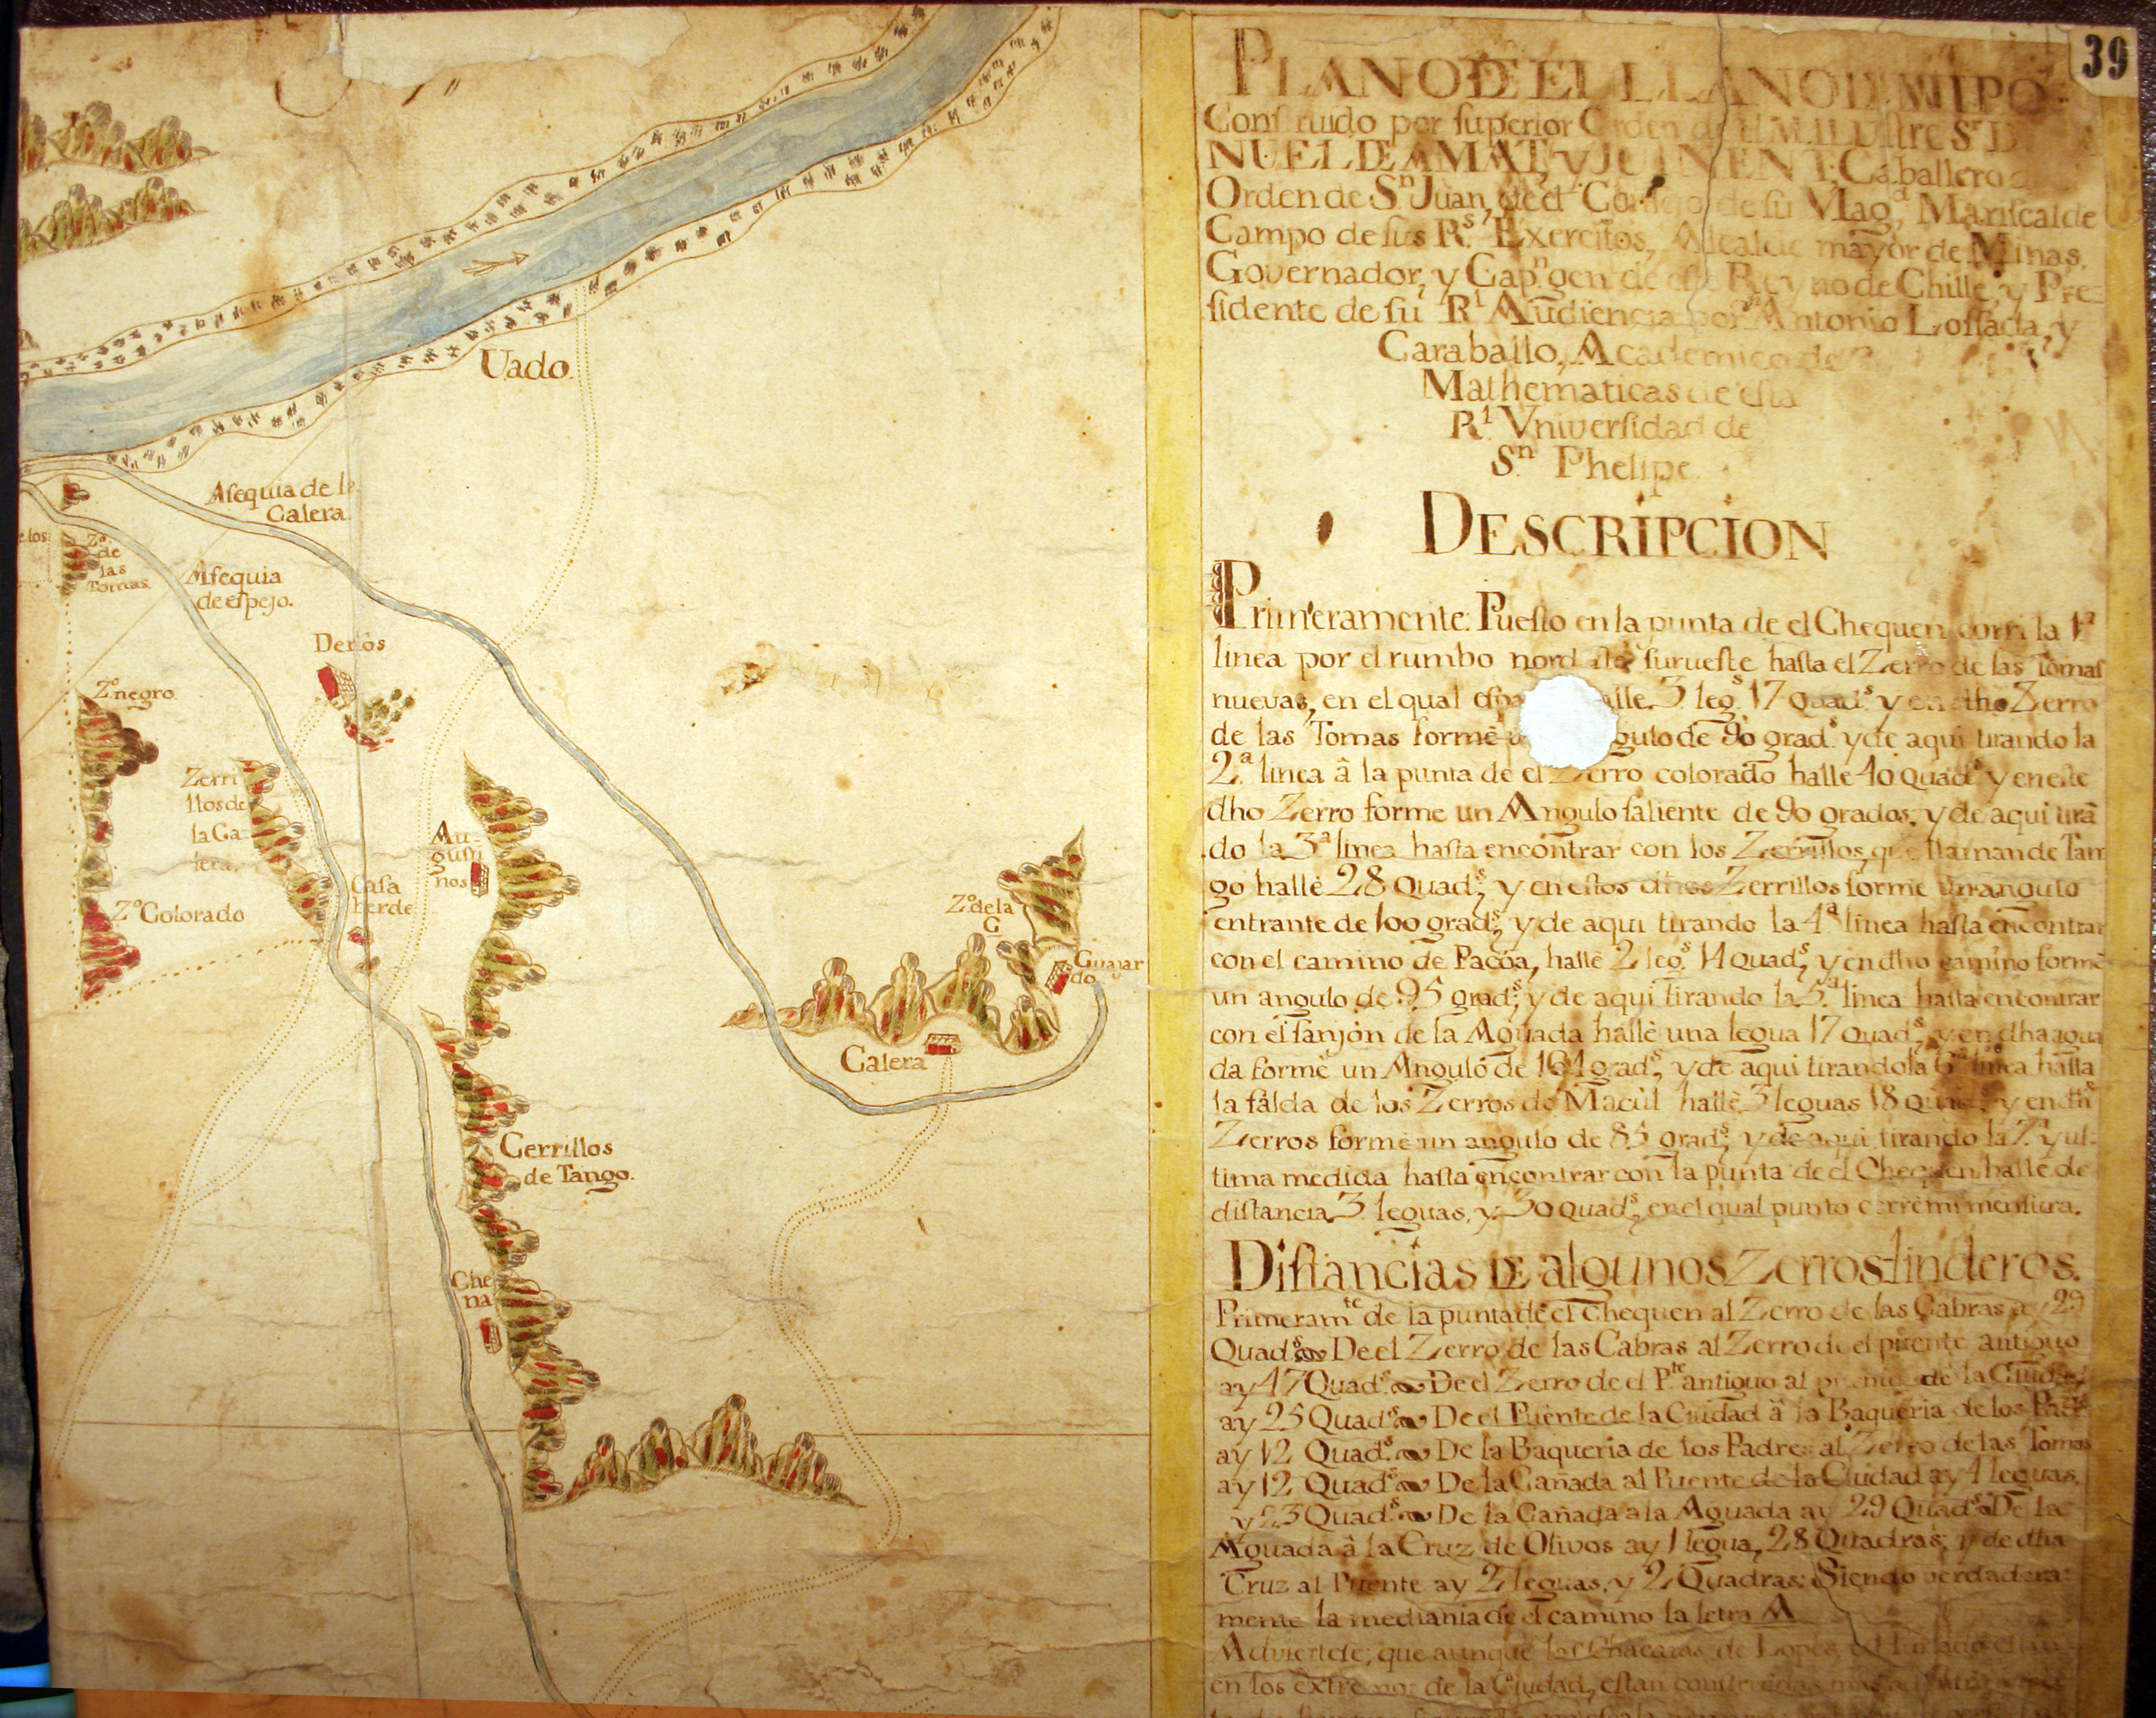 39
PLANO DE EL LLANO DE MIIPO.
Construido por superior Orden de el M. Illustre Sr. D.
NUEL DE AMAT, y JUINENT; Caballero
Orden de Sn. Juan, de el Consejo de su Magd. Mariscal de
Campo de sus Rs. Exercitos, Alcalde mayor de Minas,
Governador, y Capn. gen de este Reyno de Chille, y Pre=
sidente de su Rl. Audiencia por Antonio Lossada, y
Caraballo, Academico de
Mathematicas de esta
Rl. Vniversidad de
Sn. Phelipe.
DESCRIPCION
Primeramente: Puesto en la punta de el Chequen corri la 1ª
linea por el rumbo nord surueste hasta el Zerro de las Tomas
nuevas, en el qual alle. 3 legs. 17 Quads. y en dho Zerro
de las Tomas formè gulo de 90 grads. y de aqui tirando la
2ª linea â la punta de el Zerro colorado hallè 40 quads. y en este
dho Zerro forme un Angulo saliente de 90 grados; y de aqui tirã
do la 3ª linea hasta encontrar con los Zerrillos, que llaman de Tan
go hallè 28 Quads; y en estos dhos Zerrillos forme un angulo
entrante de 100 grads; y de aqui tirando la 4ª linea hasta encontrar
con el camino de Pacóa, hallè 2 legs. 14 quads, y en dho camino formè
un angulo de 95 grads; y de aqui tirando la 5ª linea hasta encontrar
con el sanjòn de la Aguada hallè una legua 17 Quads, y en dha agua
da formè un Angulo de 164 grads, y de aqui tirando la 6ª linea hasta
la falda de los Zerros de Macùl hallè 3 leguas 18 quads. y en dhs
Zerros formè un angulo de 85 grads, y de aqui tirando la 7ª y ul:
tima medida hasta encontrar con la punta de el Chequen hallè de
distancia 3 leguas, y 30 Quads, en el qual punto cerre mi mensura.
Distancias DE algunos Zerros linderos.
Primeramte. de la punta de el Chequen al Zerro de las Cabras ay 29
Quads. De el Zerro de las Cabras al Zerro de el puente antiguo
ay 47 Quads. De el Zerro de el Pte. antiguo al puente de la Ciudad
ay 25 Quads. De el Puente de la Ciudad â la Baqueria de los Pads.
ay 12 Quads. De la Baqueria de los Padres al Zerro de las Tomas
ay 12 Quads. De la Cañada al Puente de la Ciudad ay 4 leguas,
y 23 Quads. De la Cañada a la Aguada ay 29 Quads. De la
Aguada â la Cruz de Olivos ay 1 legua, 28 Quadras; y de dha
Cruz al Puente ay 2 leguas, y 2 Quadras: Siendo verdadera=
mente la mediania de el camino la letra A
Adviertese; que aunque las Chacaras de Lopes,
en los extremos de la Ciudad, estan construidas
Uado.
Asequia de la
Calera.
e los
Zº.
de
las
Tomas
Asequia
de espejo.
Derlos
Zº negro.
Zerri
llos de
la Ca=
lera.
Au=
gusti
nos
Casa
berde
Zº Colorado
Zº de la
C
Guajar
do
Calera
Cerrillos
de Tango.
Che
na